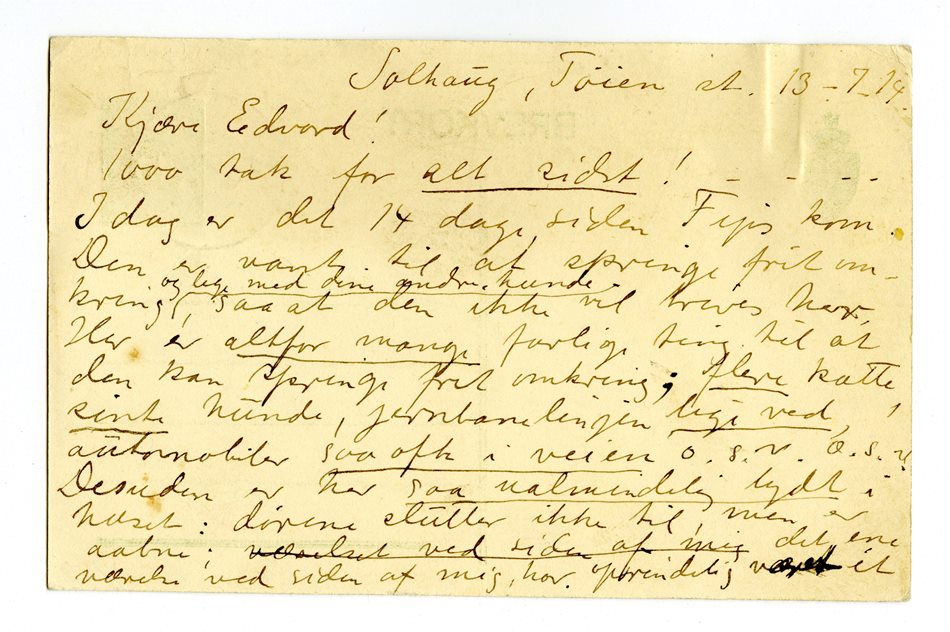 Solhaug, Tøien st. 13-7-14.
Kjære Edvard!
1000 tak for alt sidst! - - - -
I dag er det 14 dage siden Fips kom.
Den er vant til at springe frit om-
og lege med dine andre hunde.
kring, saa at den ikke vil trives her.
Her er altfor mange farlige ting til at
den kan springe frit omkring; flere katte,
sinte hunde, jernbanelinjen lige ved,
automobiler saa ofte i veien o.s.v. o.s.v.
Desuden er her saa ualmindelig lydt i
huset: dørene slutter ikke til, men er
aabne; værelset ved siden af mig det ene
værelse ved siden af mig, har oprindelig været et